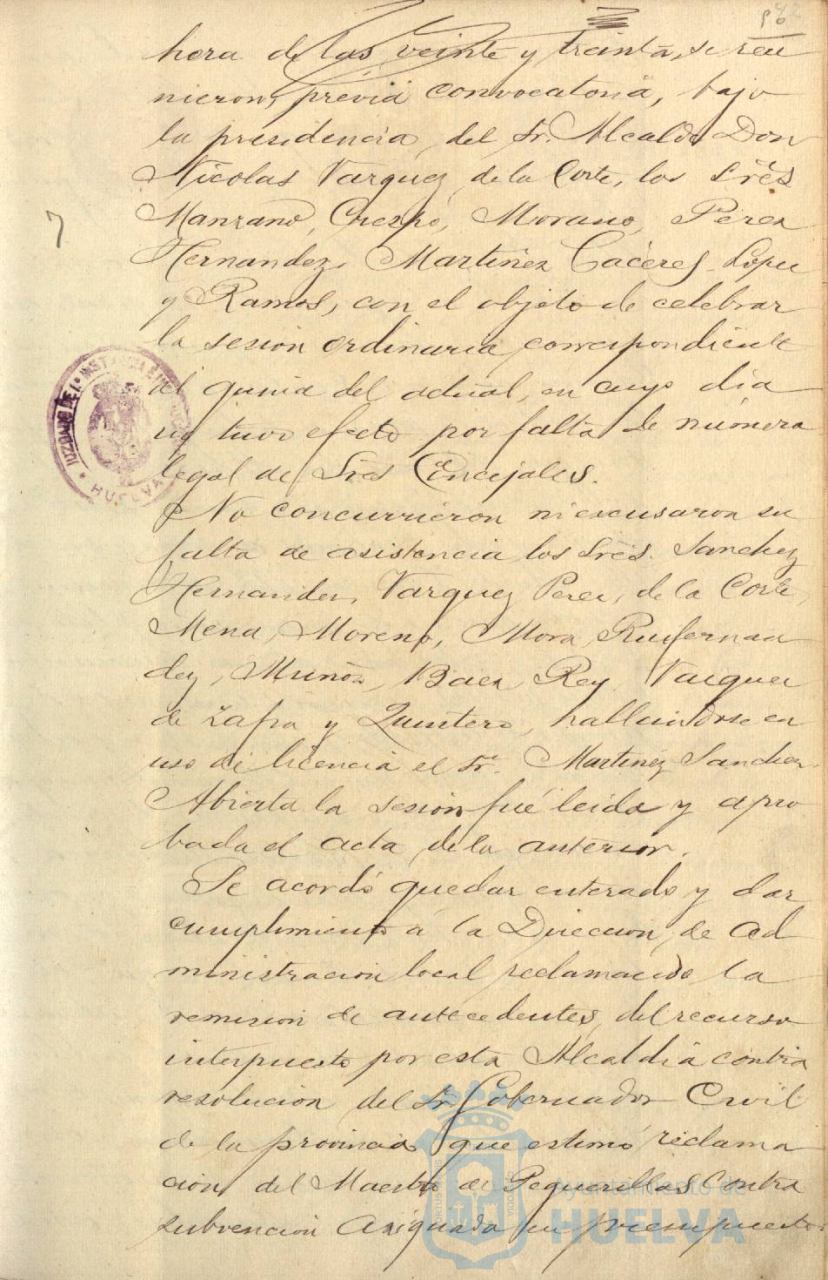 hora de las veinte y treinta, se reu
nieron, previa convocatoria, bajo
la presidencia, del Sr. Alcalde Don
Nicolas Vazquez de la Corte, los Srēs
Manzano, Crespo, Morano, Perez
Hernandez, Martinez Cáceres, Lopez
y Ramos, con el objeto de celebrar
la sesión ordinaria, correspondiente
al quince del actual, en cuyo dia
no tuvo efecto por falta de número
legal de Sres Concejales.
No concurrieron ni excusaron su
falta de asistencia los Srēs. Sanchez
Hernandez, Vazquez Perez, de la Corte,
Mena, Moreno, Mora, Ruifernan
dez, Muñoz, Baez, Rey, Vazquez
de Zafra y Quintero, hallandose en
uso de licencia el Sr. Martinez Sanchez.
Abierta la sesión fué leida y apro
bada el acta, de la anterior.
Se acordó quedar enterado y dar
cumplimiento a la Dirección, de ad
ministración local reclamando la
remision de antecedentes, del recurso
interpuesto por esta Alcaldia contra
resolución del Sr. Gobernador Civil
de la provincia que estimó reclama
ción del Maestro de Peguerillas contra
subvención asignada en presupuesto
7
JUZGADO DE 1ª INST
HUELVA
Ayuntamiento de
HUELVA